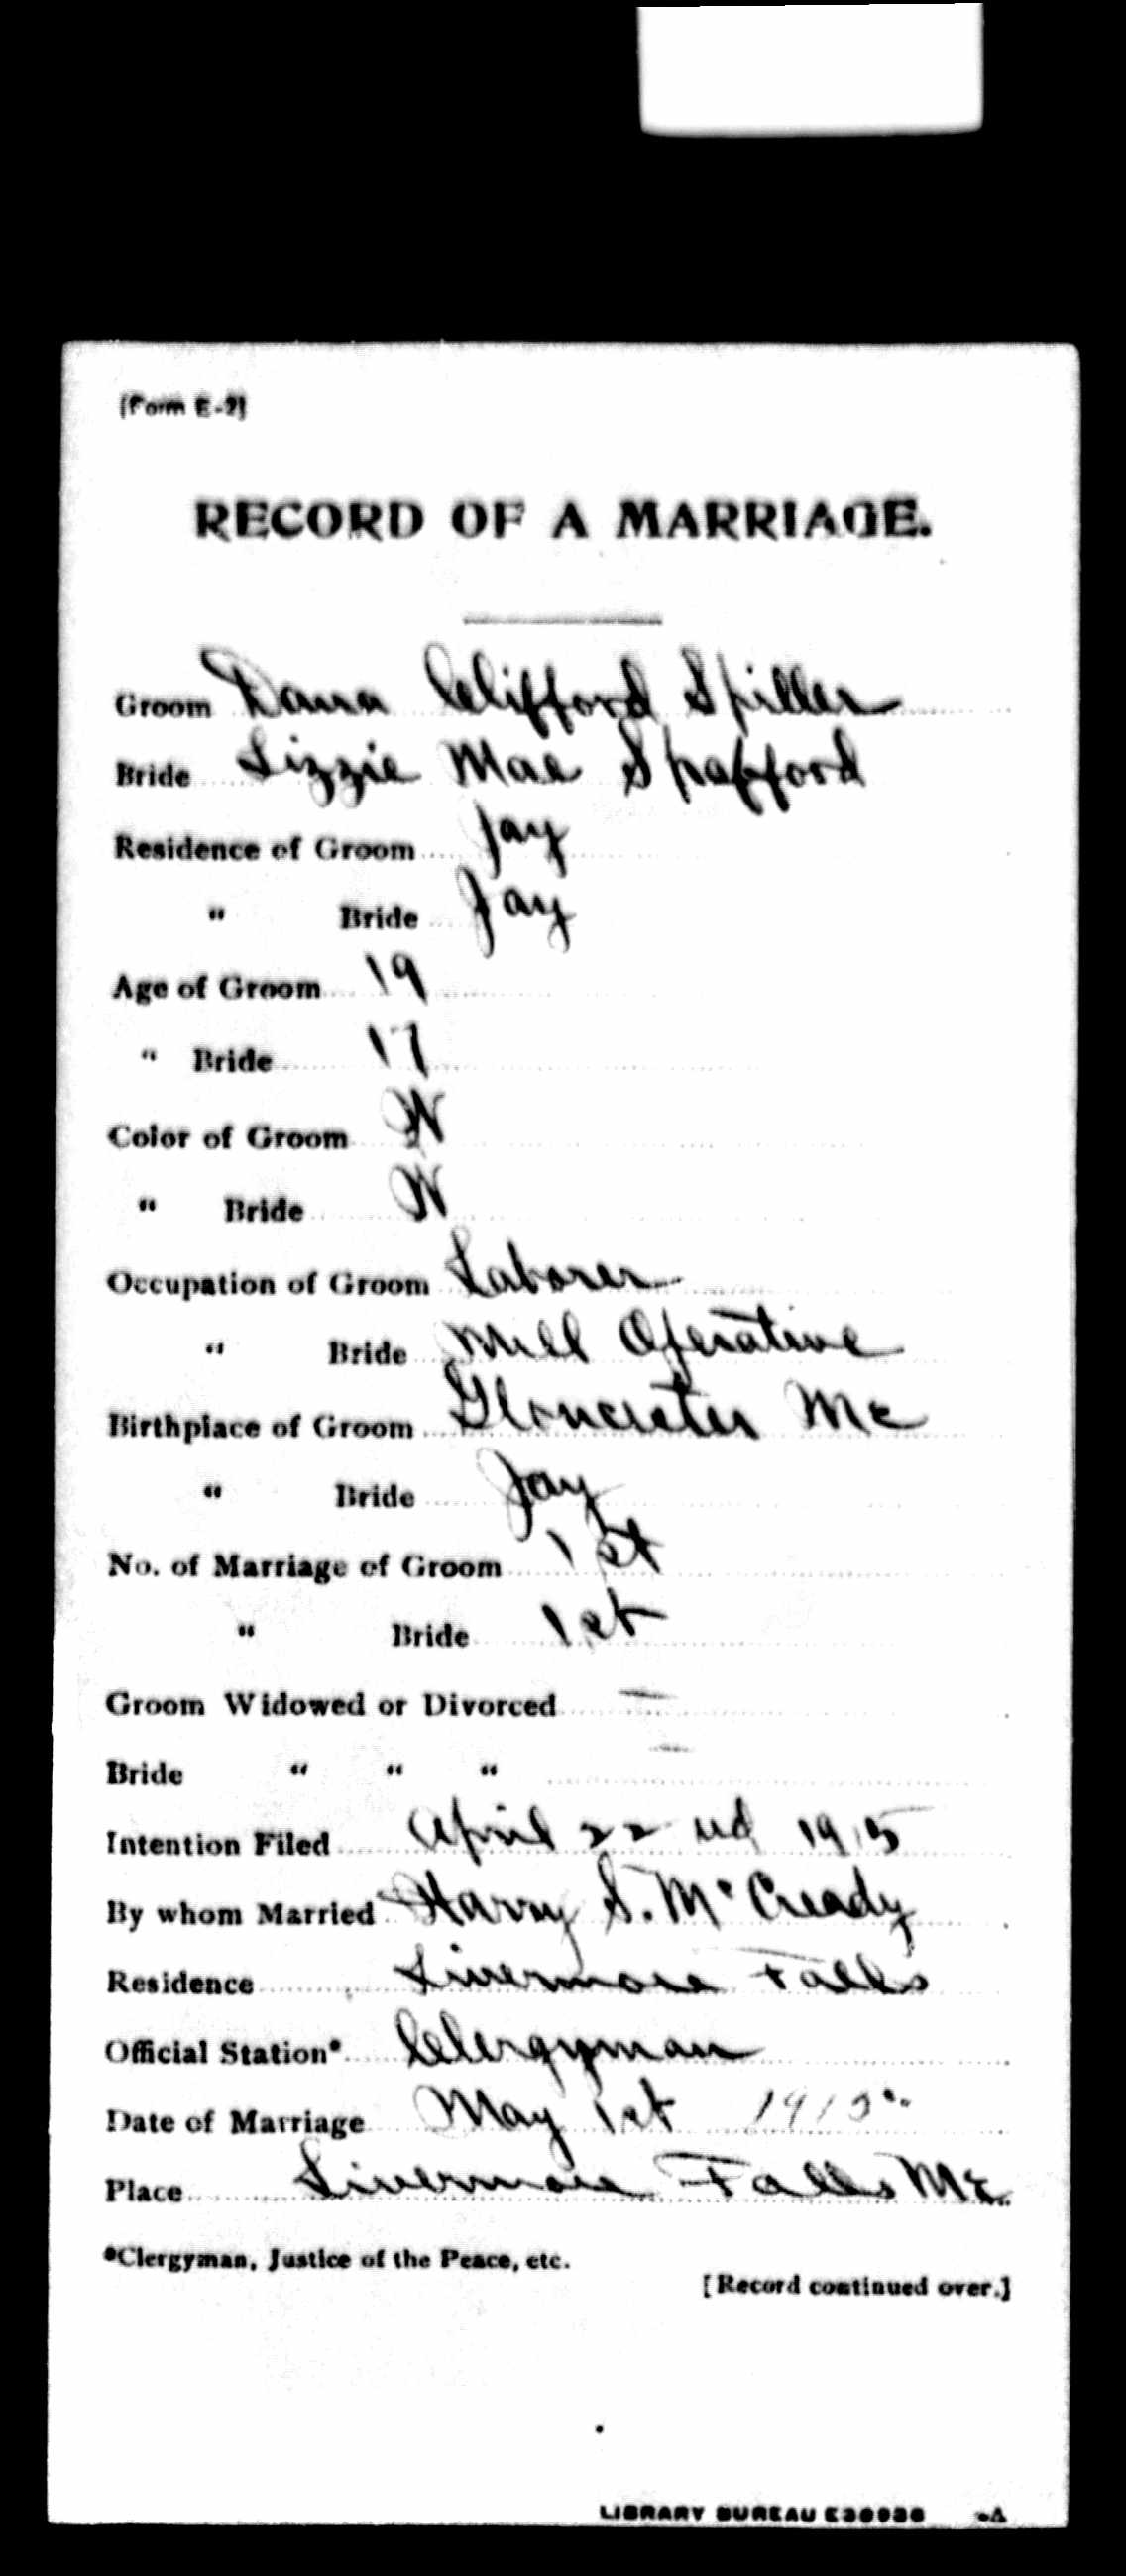 [Form E-2]
RECORD OF A MARRIAGE.
Groom Dana Clifford Spiller
Bride Lizzie Mae Spafford
Residence of Groom Jay
" Bride Jay
Age of Groom 19
" Bride 17
Color of Groom W
" Bride W
Occupation of Groom Laborer
" Bride Mill Operative
Birthplace of Groom Gloucester Me
" Bride Jay
No. of Marriage of Groom 1st
" Bride 1st
Groom Widowed or Divorced —
Bride " " " —
Intention Filed April 22nd 1915
By whom Married Harry S. McCready
Residence Livermore Falls
Official Station* Clergyman
Date of Marriage May 1st 1915
Place Livermore Falls Me.
*Clergyman, Justice of the Peace, etc.
[Record continued over.]
LIBRARY BUREAU